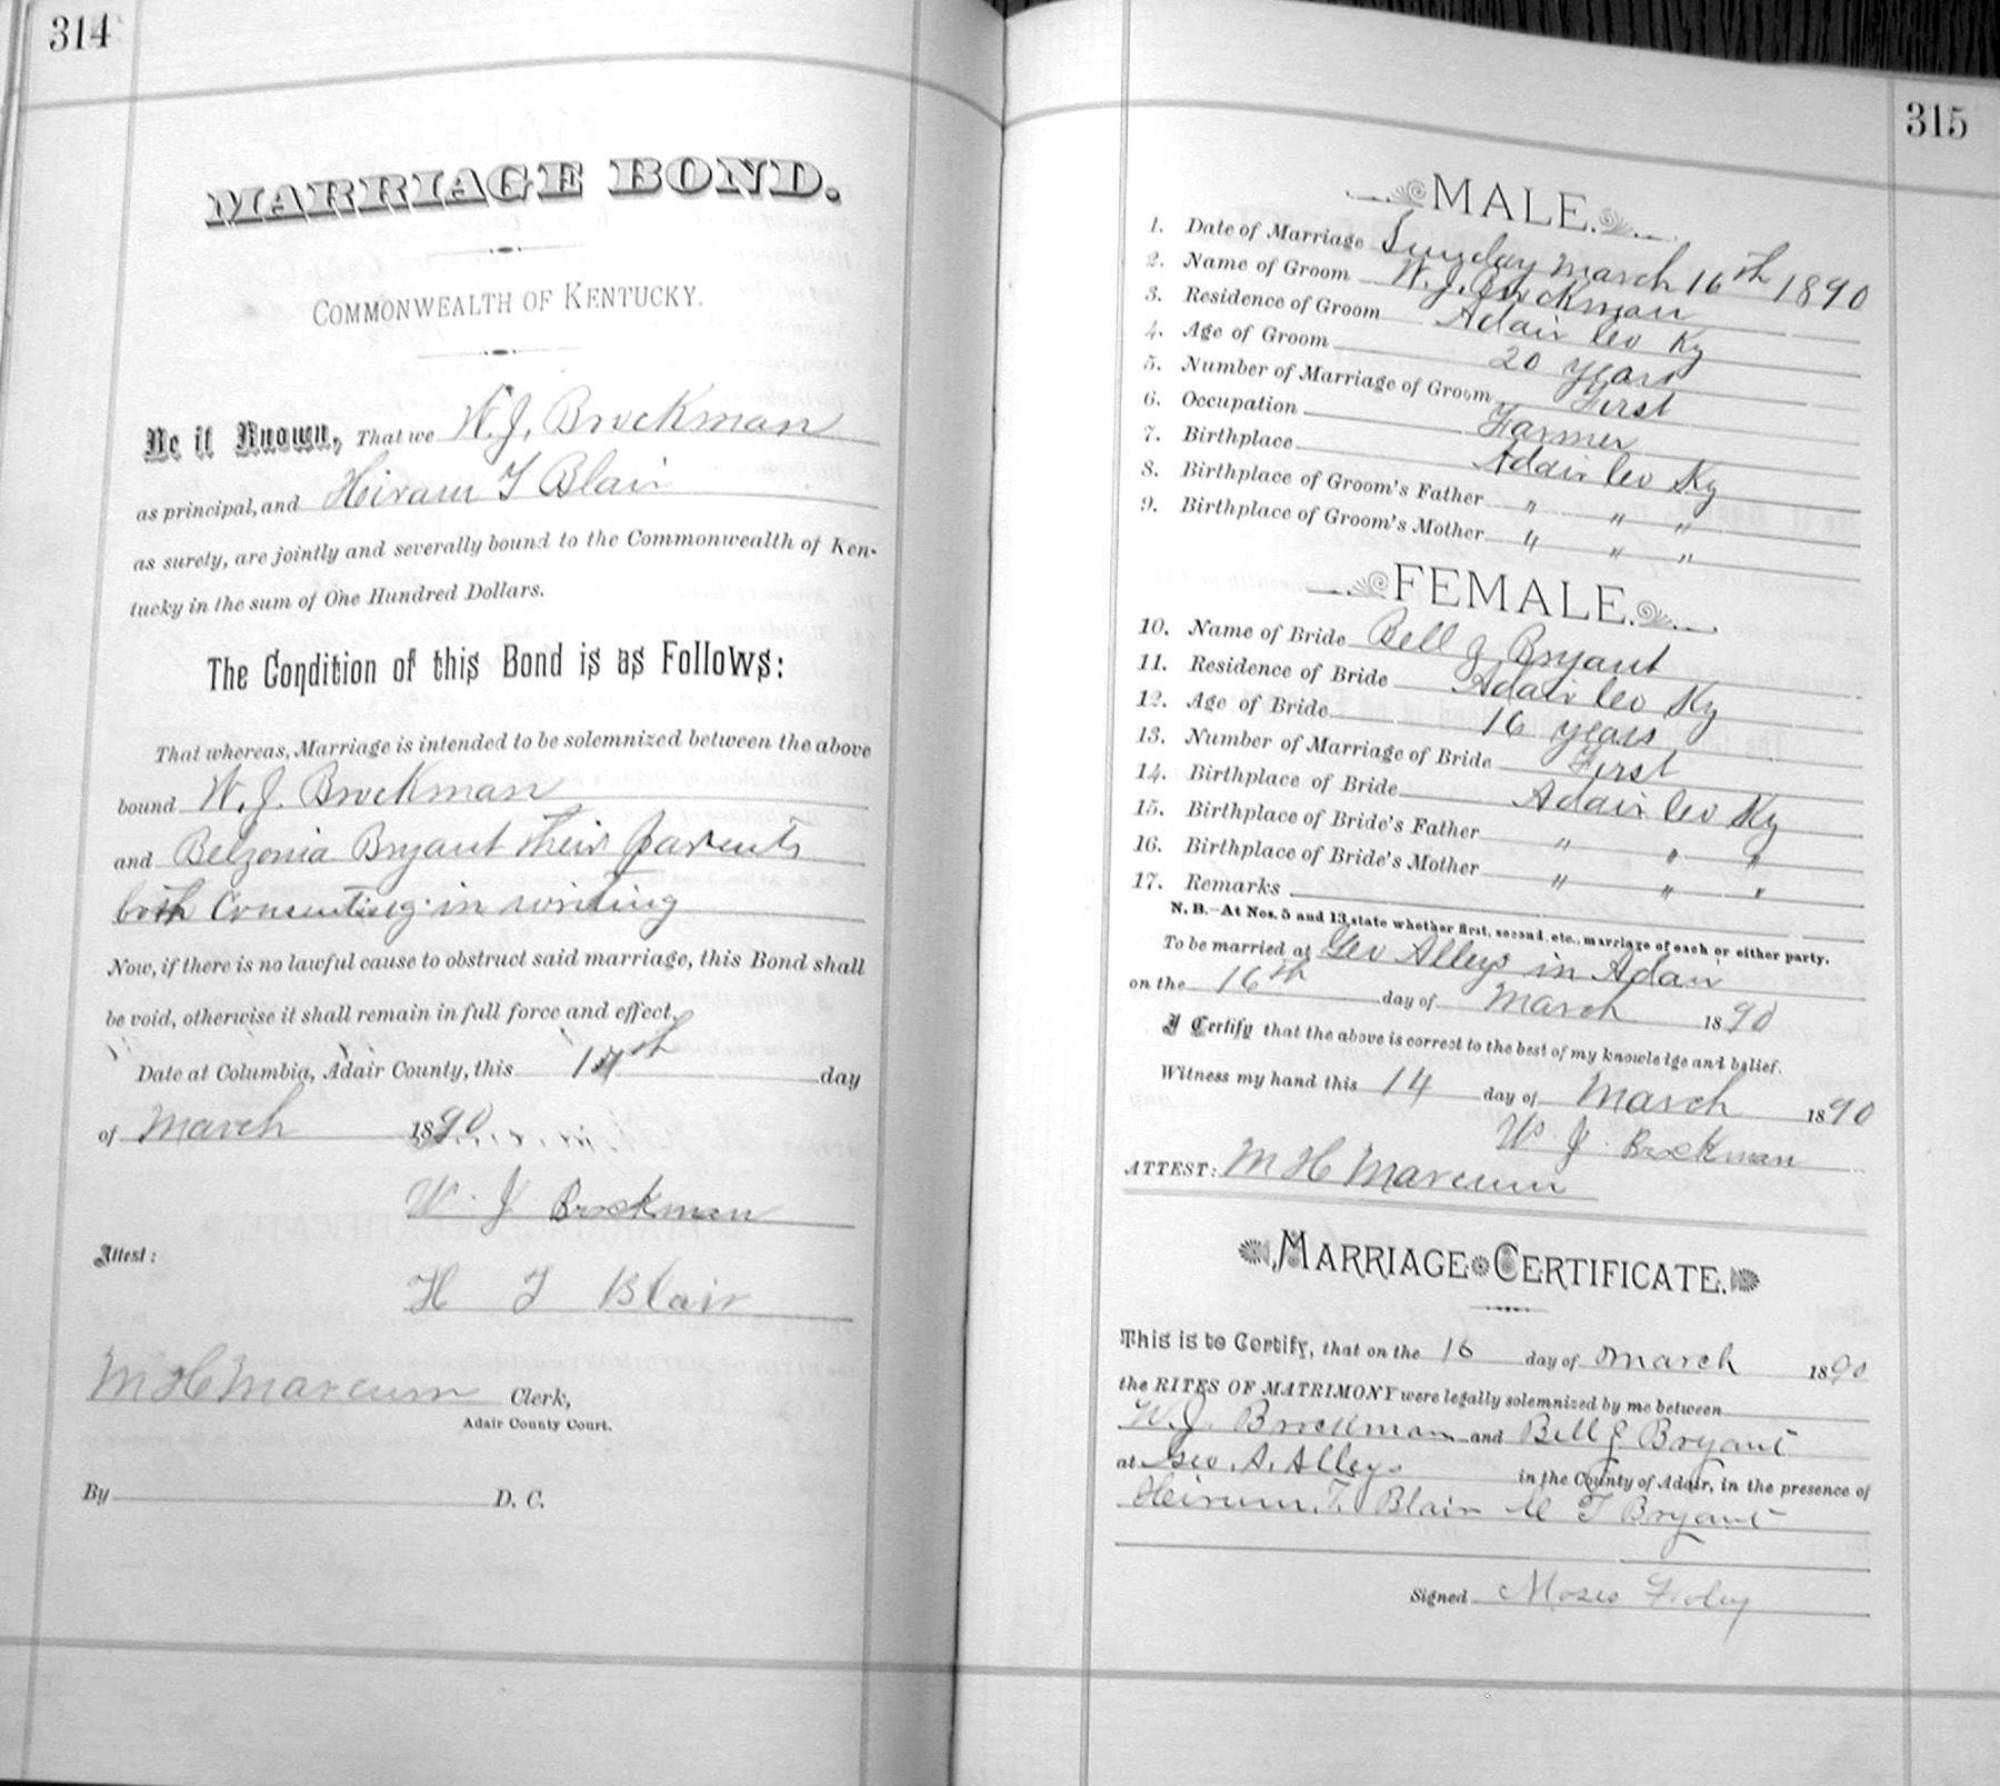 314
MARRIAGE BOND.
COMMONWEALTH OF KENTUCKY.
Be it Known, That we W. J. Brockman
as principal, and Heiram T Blair
as surety, are jointly and severally bound to the Commonwealth of Ken-
tucky in the sum of One Hundred Dollars.
The Condition of this Bond is as Follows:
That whereas, Marriage is intended to be solemnized between the above
bound W. J. Brockman
and Belzonia Bryant their parents
both Concenting in writing
Now, if there is no lawful cause to obstruct said marriage, this Bond shall
be void, otherwise it shall remain in full force and effect.
Date at Columbia, Adair County, this 14th day
of March 1890
W. J Brockman
Attest:
H T Blair
M H Marcum Clerk,
Adair County Court.
By D. C.
315
MALE.
1. Date of Marriage Sunday March 16th 1890
2. Name of Groom W. J. Brockman
3. Residence of Groom Adair Co Ky
4. Age of Groom 20 years
5. Number of Marriage of Groom First
6. Occupation Farmer
7. Birthplace Adair Co Ky
8. Birthplace of Groom's Father " " "
9. Birthplace of Groom's Mother " " "
FEMALE.
10. Name of Bride Bell J Bryant
11. Residence of Bride Adair Co Ky
12. Age of Bride 16 years
13. Number of Marriage of Bride First
14. Birthplace of Bride Adair Co Ky
15. Birthplace of Bride's Father " " "
16. Birthplace of Bride's Mother " " "
17. Remarks
N. B.—At Nos. 5 and 13, state whether first, second, etc., marriage of each or either party.
To be married at Geo Alleys in Adair
on the 16th day of March 1890
I Certify that the above is correct to the best of my knowledge and belief.
Witness my hand this 14 day of March 1890
W. J. Brockman
ATTEST: M H Marcum
MARRIAGE CERTIFICATE.
This is to Certify, that on the 16 day of March 1890
the RITES OF MATRIMONY were legally solemnized by me between
W. J. Brockman and Bell J Bryant
at Geo. A. Alleys in the County of Adair, in the presence of
Heirum T. Blair T Bryant
Signed Moses